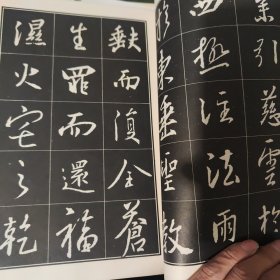 業引慈雲於
西極注法雨
於東垂聖教
缺而復全蒼
生罪而還福
濕火宅之乾